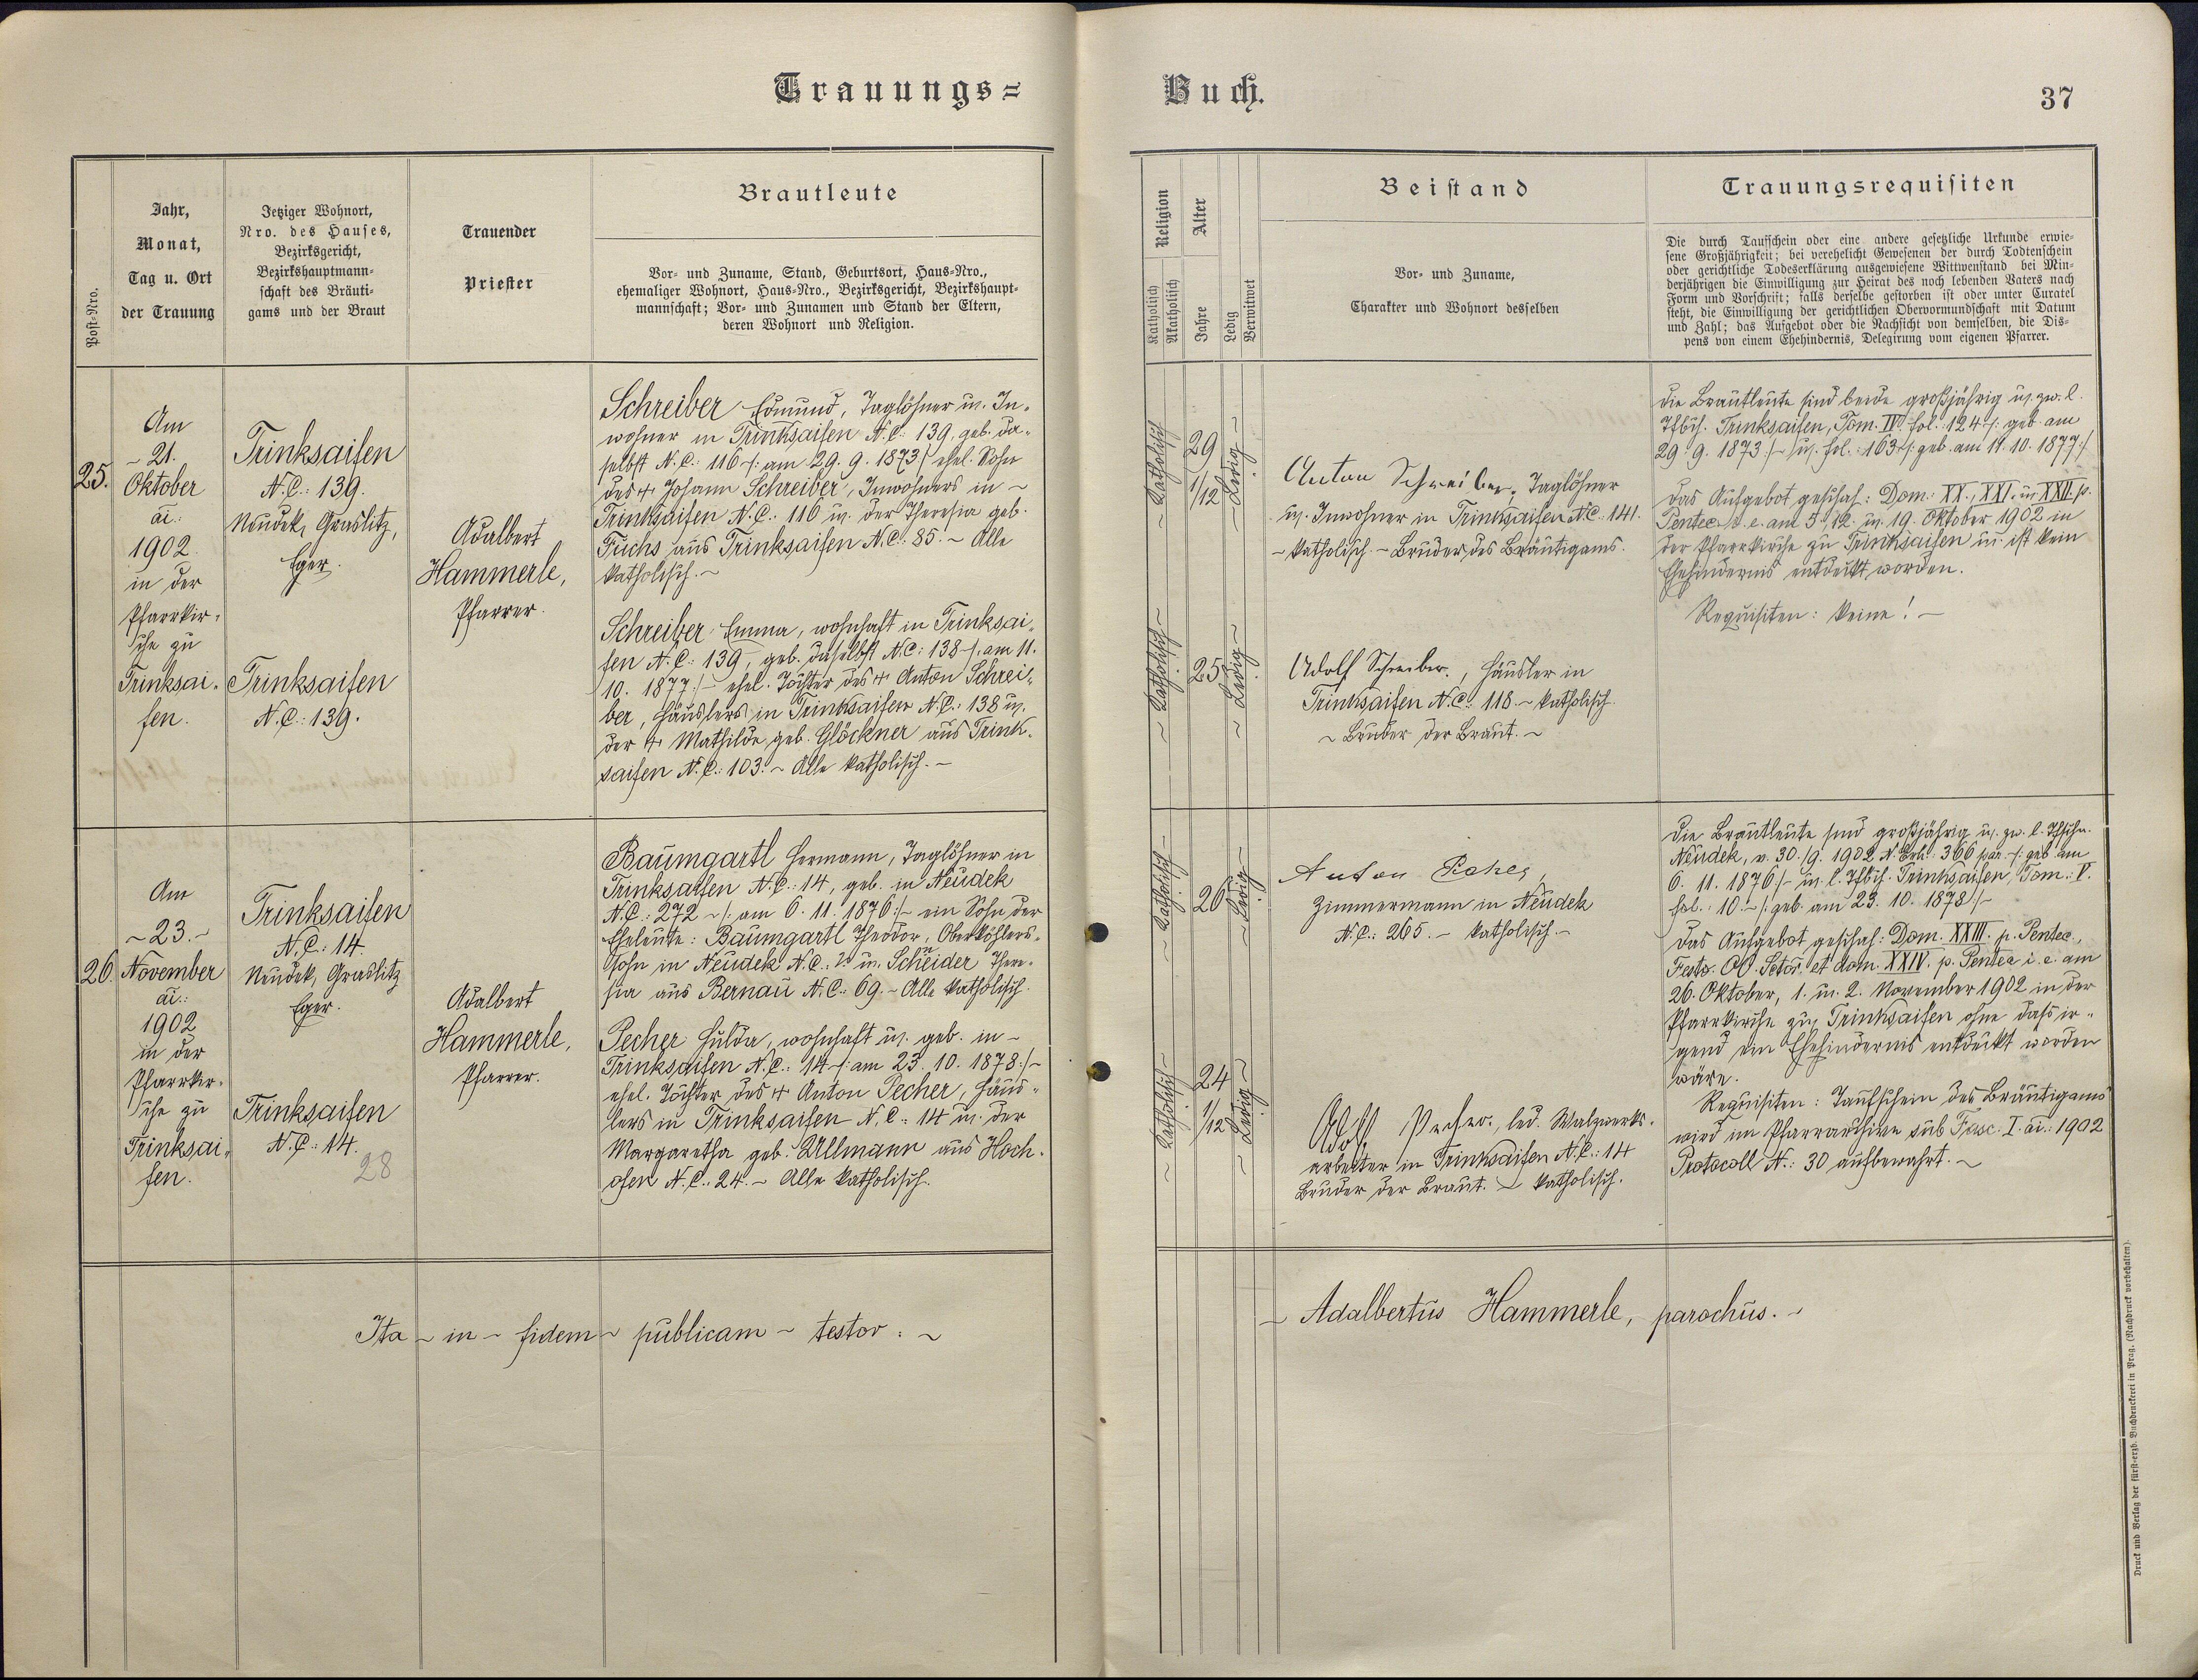 Trauungs=
Buch.
37
Post=Nro.
Jahr,
Monat,
Tag u. Ort
der Trauung
Jetziger Wohnort,
Nro. des Hauses,
Bezirksgericht,
Bezirkshauptmann=
schaft des Bräuti=
gams und der Braut
Trauender
Priester
Brautleute
Vor= und Zuname, Stand, Geburtsort, Haus=Nro.,
ehemaliger Wohnort, Haus=Nro., Bezirksgericht, Bezirkshaupt=
mannschaft; Vor= und Zunamen und Stand der Eltern,
deren Wohnort und Religion.
Religion
Katholisch
Akatholisch
Alter
Jahre
Ledig
Verwitwet
Beistand
Vor= und Zuname,
Charakter und Wohnort desselben
Trauungsrequisiten
Die durch Taufschein oder eine andere gesetzliche Urkunde erwie=
sene Großjährigkeit; bei verehelicht Gewesenen der durch Todtenschein
oder gerichtliche Todeserklärung ausgewiesene Wittwenstand bei Min=
derjährigen die Einwilligung zur Heirat des noch lebenden Vaters nach
Form und Vorschrift; falls derselbe gestorben ist oder unter Curatel
steht, die Einwilligung der gerichtlichen Obervormundschaft mit Datum
und Zahl; das Aufgebot oder die Nachsicht von demselben, die Dis=
pens von einem Ehehindernis, Delegirung vom eigenen Pfarrer.
25.
Am
~ 21.
Oktober
ai.:
1902.
in der
Pfarrkir=
che zu
Trinksai=
fen.
Trinksaifen
N.C.: 139.
Neudek, Graslitz,
Eger.
Trinksaifen
N.C.: 139.
Adalbert
Hammerle,
Pfarrer.
Schreiber Edmund, Taglöhner u. In=
wohner in Trinksaifen N.C.: 139, geb. da=
selbst N.C.: 116 -/: am 29. 9. 1873 :/ ehel. Sohn
des + Johann Schreiber, Inwohners in ~
Trinksaifen N.C.: 116 u. der Theresia geb.
Fuchs aus Trinksaifen N.C.: 85. ~ Alle
katholisch. ~
Schreiber Emma, wohnhaft in Trinksai=
fen N.C.: 139, geb. daselbst N.C.: 138 -/: am 11.
10. 1877 :/- ehel. Tochter des + Anton Schrei=
ber, Häuslers in Trinksaifen N.C.: 138 u.
der + Mathilde geb. Glöckner aus Trink=
saifen N.C.: 103. ~ Alle katholisch. ~
~ Katholisch ~
29
1/12
~ Ledig ~
~ Katholisch ~
25
~ Ledig ~
Anton Schreiber, Taglöhner
u. Inwohner in Trinksaifen N.C.: 141.
~ katholisch. ~ Bruder des Bräutigams.
Adolf Schreiber, Häusler in
Trinksaifen N.C.: 118. ~ katholisch.
~ Bruder der Braut. ~
Die Brautleute sind beide großjährig u. zw. l.
Tfbch. Trinksaifen, Tom. IV. fol.: 124 -/: geb. am
29. 9. 1873 :/- u. fol.: 163 -/: geb. am 11. 10. 1877 :/
Das Aufgebot geschah: Dom. XX., XXI. u. XXII. p.
Pentec. i. e. am 5., 12. u. 19. Oktober 1902 in
der Pfarrkirche zu Trinksaifen u. ist kein
Ehehindernis entdeckt worden.
Requisiten: keine! ~
26.
Am
~ 23. ~
November
ai.:
1902
in der
Pfarrkir=
che zu
Trinksai=
fen.
Trinksaifen
N.C.: 14.
Neudek, Graslitz
Eger.
Trinksaifen
N.C.: 14.
28
Adalbert
Hammerle,
Pfarrer.
Baumgartl Hermann, Taglöhner in
Trinksaifen N.C.: 14, geb. in Neudek
N.C.: 272 ~ /: am 6. 11. 1876 :/- ein Sohn der
Eheleute: Baumgartl Theodor, Oberköhlers=
sohn in Neudek N.C.: u. Scheider There=
sia aus Bernau N.C.: 69. ~ Alle katholisch.
Pecher Hulda, wohnhaft u. geb. in ~
Trinksaifen N.C.: 14 -/: am 23. 10. 1878 :/-
ehel. Tochter des + Anton Pecher, Häus=
lers in Trinksaifen N.C.: 14 u. der
Margaretha geb. Ullmann aus Hoch=
ofen N.C.: 24. ~ Alle katholisch.
~ Katholisch ~
26
~ Ledig ~
~ Katholisch ~
24
1/12
~ Ledig ~
Anton
Zimmermann in Neudek
N.C.: 265. ~ katholisch. ~
Adolf Pecher, led. Walzwerks=
arbeiter in Trinksaifen N.C.: 14
Bruder der Braut. ~ katholisch.
Die Brautleute sind großjährig u. zw. l. Tfschn.
Neudek, v. 30. /9. 1902 N. Exh.: 366 par. -/: geb. am
6. 11. 1876 :/- u. l. Tfbch. Trinksaifen, Tom.: V.
fol.: 10. ~ /: geb. am 23. 10. 1878 :/ ~
Das Aufgebot geschah: Dom. XXIII. p. Pentec.,
Festo OO. Sctor. et dom. XXIV. p. Pentec. i. e. am
26. Oktober, 1. u. 2. November 1902 in der
Pfarrkirche zu Trinksaifen ohne dass ir=
gend ein Ehehindernis entdeckt worden
wäre.
Requisiten: Taufschein des Bräutigams
wird im Pfarrarchive sub Fasc. I. ai.: 1902
Protocoll N.: 30 aufbewahrt. ~
Ita ~ in ~ fidem ~ publicam ~ testor: ~
~ Adalbertus Hammerle, parochus. ~
Druck und Verlag der fürst=erzb. Buchdruckerei in Prag. (Nachdruck vorbehalten).